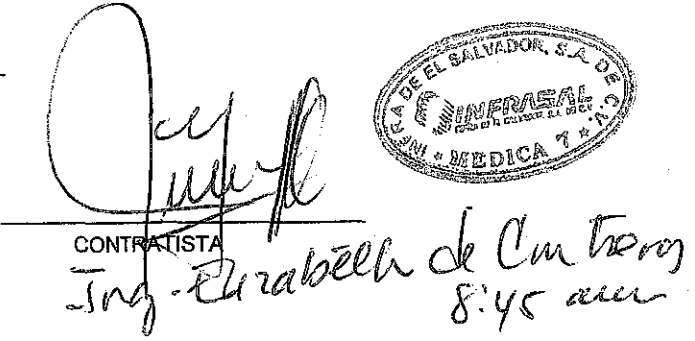 INFRA DE EL SALVADOR, S.A. DE C.V.
INFRASAL
* MEDICA 7 *
CONTRATISTA
Ing. Elizabeth de Contreras
8:45 am